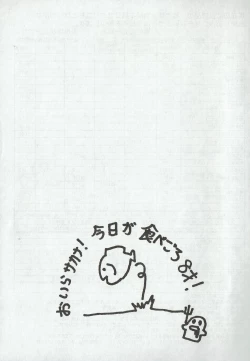 おいらサカナ! 今日が食べごろ8才!